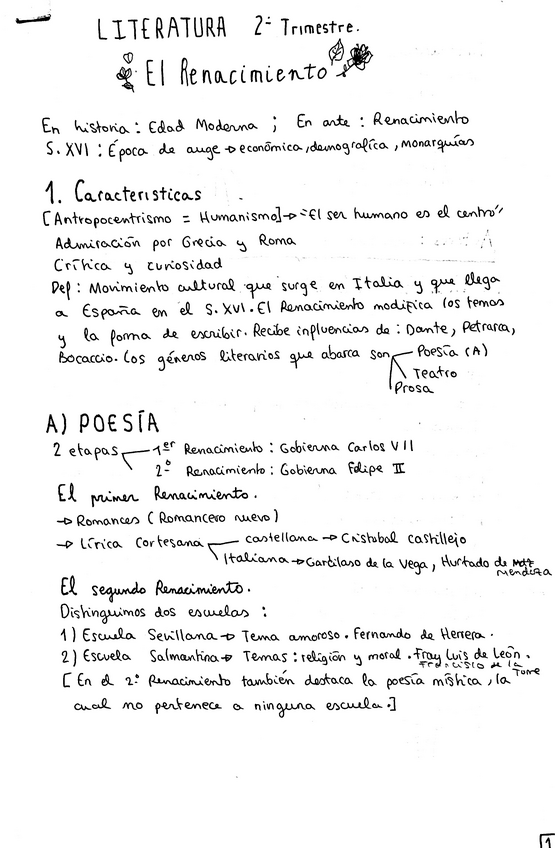 LITERATURA 2º Trimestre.
El Renacimiento
En historia: Edad Moderna ; En arte: Renacimiento
S. XVI: Época de auge → económica, demografíca, monarquías
1. Caracteristicas
[Antropocentrismo = Humanismo] → "El ser humano es el centro"
Admiración por Grecia y Roma
Crítica y curiosidad
Def: Movimiento cultural que surge en Italia y que llega
a España en el S. XVI. El Renacimiento modifica los temas
y la forma de escribir. Recibe influencias de: Dante, Petrarca,
Bocaccio. Los géneros literarios que abarca son Poesía (A)
Teatro
Prosa
A) POESÍA
2 etapas 1er Renacimiento: Gobierna Carlos VII
2º Renacimiento: Gobierna Felipe II
El primer Renacimiento.
→ Romances (Romancero nuevo)
→ Lírica Cortesana castellana → Cristobal castillejo
Italiana → Garcilaso de la Vega, Hurtado de Mendoza
El segundo Renacimiento.
Distinguimos dos escuelas:
1) Escuela Sevillana → Tema amoroso. Fernando de Herrera.
2) Escuela Salmantina → Temas: religión y moral. Fray Luis de León.
Francisco de la Torre
[En el 2º Renacimiento también destaca la poesía mística, la
cual no pertenece a ninguna escuela.]
1